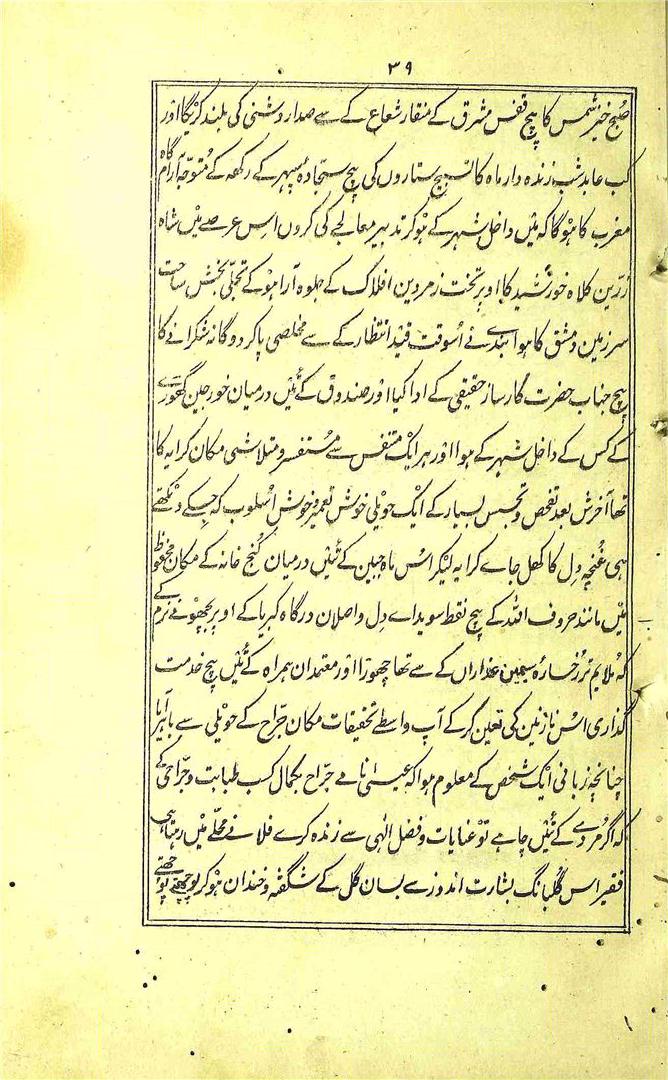 ۳۹
صبح خیز شمس کا بیچ قفس مشرق کے منقار شعاع کے سے صدا روشنی کی بلند کریگا اور
کب عابد شب زندہ دار ماہ کا تسبیح ستاروں کی بیچ سجادہ سپہر کے رکھہ کے متوجہ آرام گاہ
مغرب کا ہوگا کہ میں داخل شہر کے ہوکر تدبیر معالجے کی کروں اس عرصے میں شاہ
زرین کلاہ خورشید کا اوپر تخت زمردین افلاک کے جلوہ آرا ہو کے تجلی بخش ساحت
سرزمین دمشق کا ہوا بندے نے اسوقت قید انتظار کے سے مخلصی پاکر دوگانہ شکرانے کا
بیچ جناب حضرت کارساز حقیقی کے ادا کیا اور صندوق کے تئیں درمیان خورجین گھوڑے
کے کس کے داخل شہر کے ہوا اور ہر ایک متنفس سے مستفسر و متلاشی مکان کرایہ کا
تھا آخرش بعد تفحص و تجسس بسیار کے ایک حویلی خوش تعمیر و خوش اسلوب کہ جسکے دیکھتے
ہی غنچہ دل کا کھل جاے کرایہ لیکر اس ماہ جبین کے تئیں درمیان کنج خانہ کے مکان محفوظ
میں مانند حروف اللہ کے بیچ نقط سویداے دل واصلان درگاہ کبریا کے اوپر بچھونے نرم کے
کہ ملایم تر رخسارہ سیمین عذاراں کے سے تھا چھوڑا اور معتمدان ہمراہ کے تئیں بیچ خدمت
گذاری اس نازنین کی تعین کر کے آپ واسطے تحقیقات مکان جراح کے حویلی سے باہر آیا
چنانچہ زبانی ایک شخص کے معلوم ہوا کہ عیسیٰ نامے جراح بکمال کسب طبابت و جراحی کے
کہ اگر مردے کے تئیں چاہے تو عنایات و فضل الٰہی سے زندہ کرے فلانے محلے میں رہتا ہی
فقیر اس گلبانگ بشارت اندوز سے بسان گل کے شگفتہ و خندان ہوکر پوچھتے پوچھتے